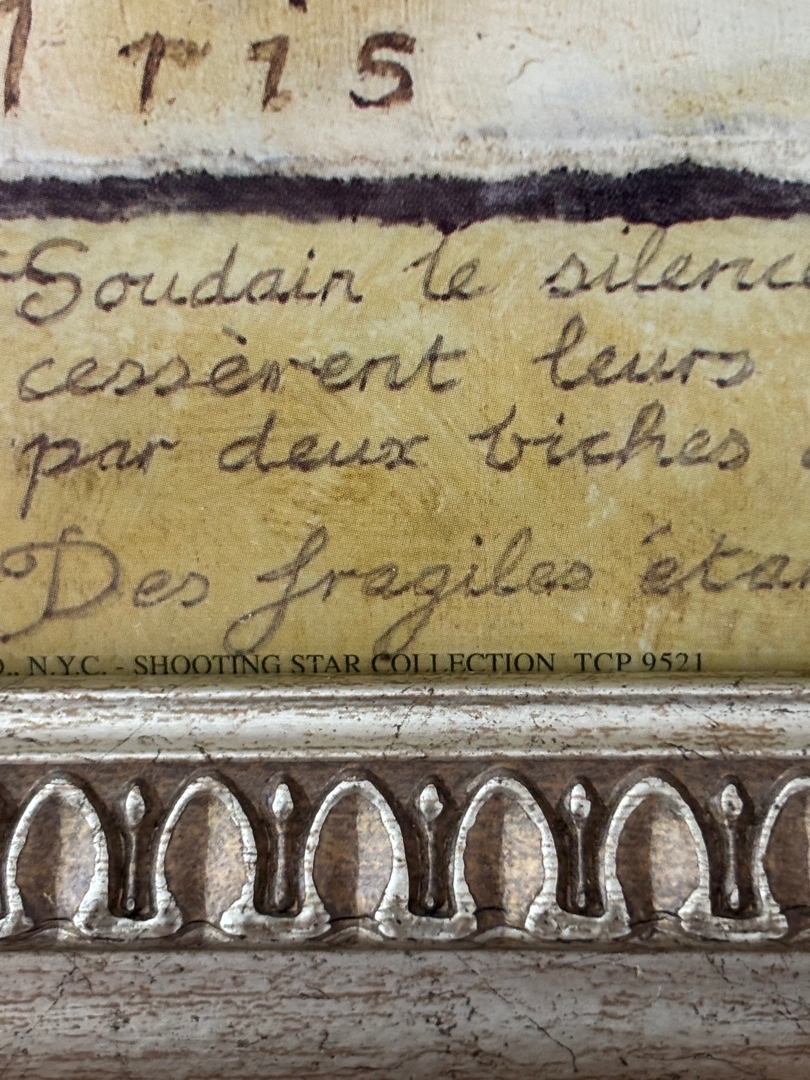 ris
Soudain le silence
cessèrent leurs
par deux biches
Des fragiles
N.Y.C. - SHOOTING STAR COLLECTION TCP 9521